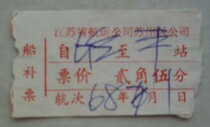 江苏省航运公司苏州分公司
船补票
自 至 站
票价 贰角伍分
航次 68年 月 日